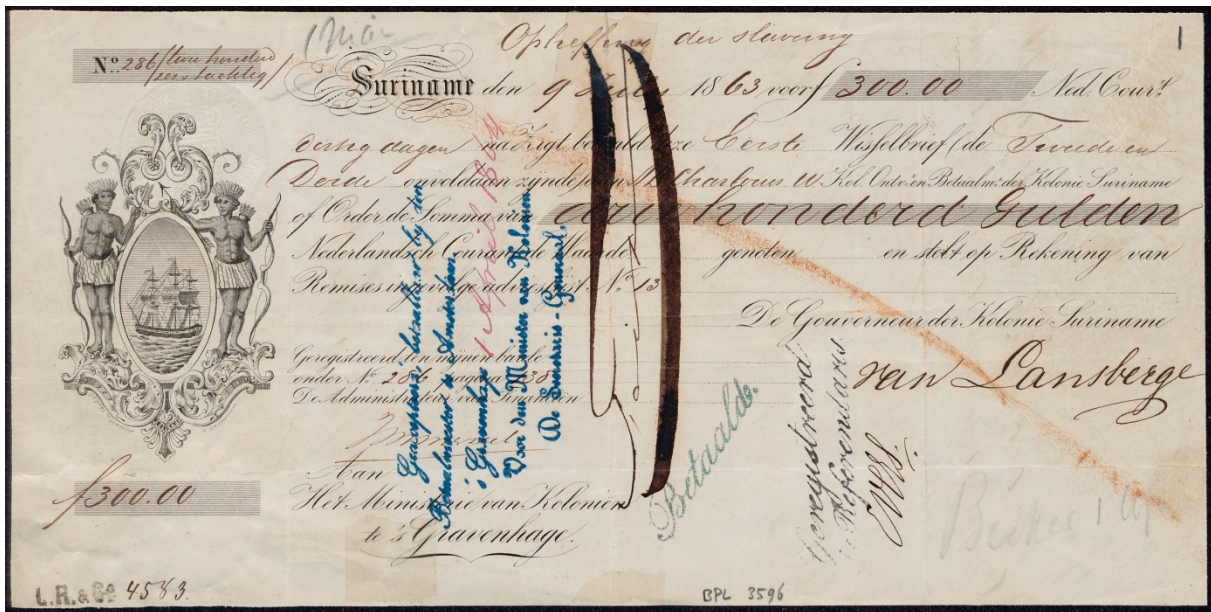 Opheffing der slaverny
1
No. 286 / twee honderd
zes & tachtig /
Suriname den 9 July 1863 voor f 300.00 Ned. Cour.t
dertig dagen na Zigt betaald deze Eerste Wisselbrief (de Tweede en
Derde onvoldaan zynde) aan Kol. Ontv.r en Betaalm.r der Kolonie Suriname
of Order de Somma van drie honderd Gulden
Nederlandsch Courant de Waarde genoten en stelt op Rekening van
Remises ingevolge advieslijst No. 13
De Gouverneur der Kolonie Suriname
van Lansberge
Geregistreerd ten mynen bureele
onder No. 286 pagina 38
De Administrateur van Financien
Aan
Het Ministerie van Kolonien
te 's Gravenhage.
f 300.00
Geaccepteerd, betaalbaar by den
Betaalmeester te Amsterdam.
's Gravenhage 1 April 1864
Voor den Minister van Kolonien,
De Secretaris-Generaal,
Betaald.
Geregistreerd
Referendaris
L.R. & Co. 4583.
BPL 3596